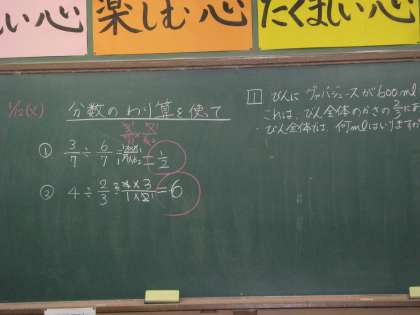 しい心
楽しむ心
たくましい心
1/12(火)
分数のわり算を使って
① 3/7 ÷ 6/7 = 1/2
② 4 ÷ 2/3 = 6
1 びんに グァバジュースが600ml
これは、びん全体のかさの 2/3にあ
・びん全体では、何mlはいりますか